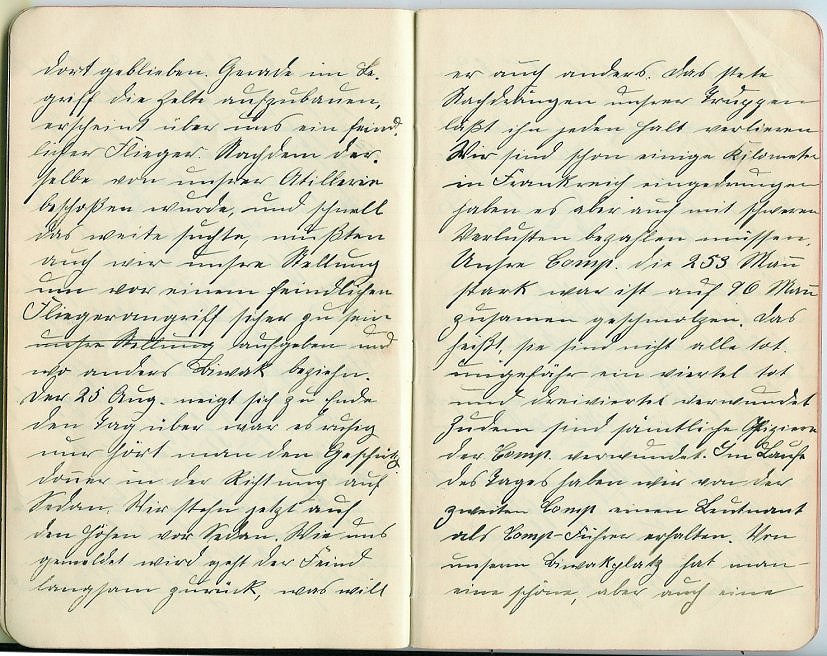 dort geblieben. Gerade im Be-
griff die Zelte aufzubauen,
erscheint über uns ein feind-
licher Flieger. Nachdem der-
selbe von unsrer Atillerie
beschoßen wurde, und schnell
das weite suchte, mußten
auch wir unsre Stellung
um vor einem feindlichen
Fliegerangriff sicher zu sein
unsre Stellung aufgeben und
wo anders Biwak beziehn.
Der 25 Aug. neigt sich zu Ende
den Tag über war es ruhig
nur hört man den Geschütz-
donner in der Richtung auf
Sedan. Wir stehn jetzt auf
den Höhen vor Sedan. Wie uns
gemeldet wird geht der Feind
langsam zurück, was will
er auch anders. Das stete
Nachdrängen unsrer Truppen
läßt ihn jeden Halt verlieren
Wir sind schon einige Kilometer
in Frankreich eingedrungen
haben es aber auch mit schweren
Verlusten bezahlen müssen.
Unsre Comp. die 253 Mann
stark war ist auf 96 Mann
zusamen geschmolzen. Das
heißt, sie sind nicht alle tot.
ungefähr ein viertel tot
und dreiviertel verwundet
Zudem sind sämtliche Offiziere
der Comp. verwundet. Im Laufe
des Tages haben wir von der
zweiten Comp einen Leutnant
als Comp-Führer erhalten. Von
unserm Biwakplatz hat man
eine schöne, aber auch eine